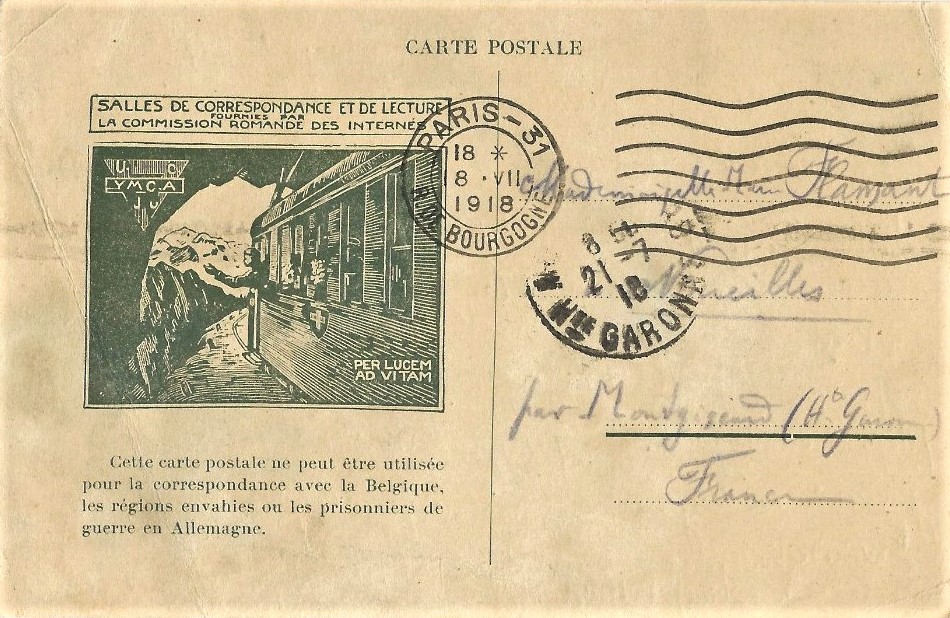 CARTE POSTALE
SALLES DE CORRESPONDANCE ET DE LECTURE
FOURNIES PAR
LA COMMISSION ROMANDE DES INTERNÉS
YMCA
PER LUCEM
AD VITAM
Cette carte postale ne peut être utilisée
pour la correspondance avec la Belgique,
les régions envahies ou les prisonniers de
guerre en Allemagne.
PARIS-31
18 *
8 · VII
1918
R. DE BOURGOGNE
Mademoiselle
21
18
Hte GARONNE
par
France